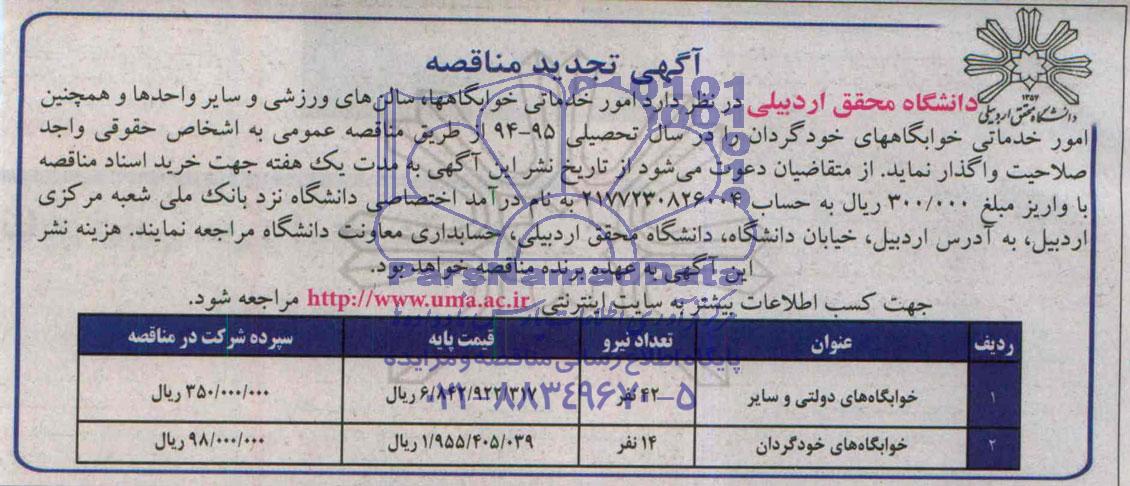 آگهی تجدید مناقصه
دانشگاه محقق اردبیلی
۱۳۵۷
دانشگاه محقق اردبیلی در نظر دارد امور خدماتی خوابگاهها، سالن‌های ورزشی و سایر واحدها و همچنین
امور خدماتی خوابگاههای خودگردان را در سال تحصیلی ۹۵-۹۴ از طریق مناقصه عمومی به اشخاص حقوقی واجد
صلاحیت واگذار نماید. از متقاضیان دعوت می‌شود از تاریخ نشر این آگهی به مدت یک هفته جهت خرید اسناد مناقصه
با واریز مبلغ ۳۰۰/۰۰۰ ریال به حساب ۲۱۷۷۲۳۰۸۲۶۰۰۴ به نام درآمد اختصاصی دانشگاه نزد بانک ملی شعبه مرکزی
اردبیل، به آدرس اردبیل، خیابان دانشگاه، دانشگاه محقق اردبیلی، حسابداری معاونت دانشگاه مراجعه نمایند. هزینه نشر
این آگهی به عهده برنده مناقصه خواهد بود.
جهت کسب اطلاعات بیشتر به سایت اینترنتی http://www.uma.ac.ir مراجعه شود.
ردیف عنوان تعداد نیرو قیمت پایه سپرده شرکت در مناقصه
۱ خوابگاه‌های دولتی و سایر ۴۲ نفر ۶/۸۴۲/۹۲۲/۳۱۷ ریال ۳۵۰/۰۰۰/۰۰۰ ریال
۲ خوابگاه‌های خودگردان ۱۴ نفر ۱/۹۵۵/۴۰۵/۰۳۹ ریال ۹۸/۰۰۰/۰۰۰ ریال
ParsNamad Data
پایگاه اطلاع رسانی مناقصه و مزایده
۰۲۱-۸۸۳۴۹۶۷۰-۵